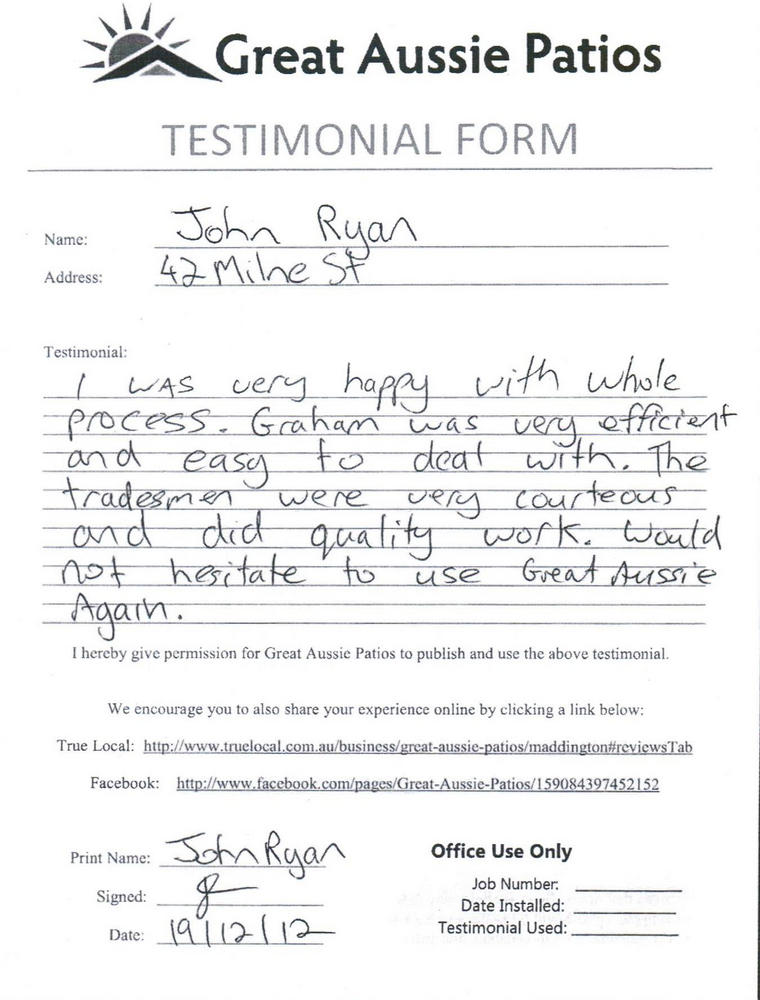 Great Aussie Patios
TESTIMONIAL FORM
Name: John Ryan
Address: 42 Milne St
Testimonial:
I was very happy with whole
process. Graham was very efficient
and easy to deal with. The
tradesmen were very courteous
and did quality work. Would
not hesitate to use Great Aussie
Again.
I hereby give permission for Great Aussie Patios to publish and use the above testimonial.
We encourage you to also share your experience online by clicking a link below:
True Local: http://www.truelocal.com.au/business/great-aussie-patios/maddington#reviewsTab
Facebook: http://www.facebook.com/pages/Great-Aussie-Patios/159084397452152
Print Name: John Ryan
Signed:
Date: 19/12/12
Office Use Only
Job Number:
Date Installed:
Testimonial Used: